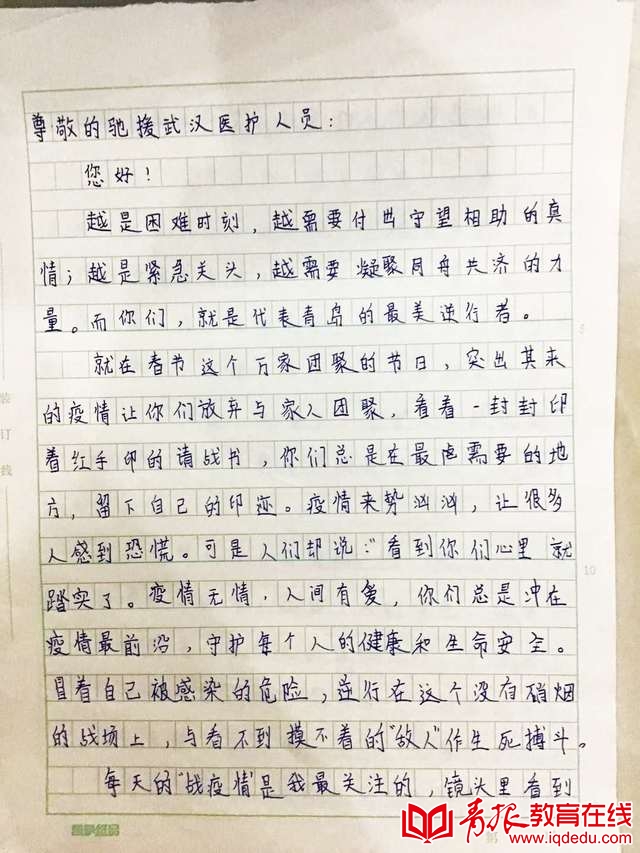 尊敬的驰援武汉医护人员：
您好！
越是困难时刻，越需要付出守望相助的真
情；越是紧急关头，越需要凝聚同舟共济的力
量。而你们，就是代表青岛的最美逆行者。
就在春节这个万家团聚的节日，突出其来
的疫情让你们放弃与家人团聚，看着一封封印
着红手印的请战书，你们总是在最需要的地
方，留下自己的印迹。疫情来势汹汹，让很多
人感到恐慌。可是人们却说："看到你们心里就
踏实了。疫情无情，人间有爱，你们总是冲在
疫情最前沿，守护每个人的健康和生命安全。
冒着自己被感染的危险，逆行在这个没有硝烟
的战场上，与看不到摸不着的"敌人"作生死搏斗。
每天的"战疫情"是我最关注的，镜头里看到
装
订
线
5
10
第
青报教育在线
www.iqdedu.com